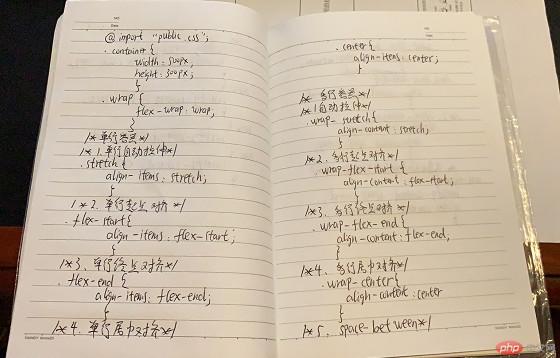 NO.
Date
@import "public.css";
.container{
width: 500px;
height: 500px;
}
.wrap {
flex-wrap: wrap;
}
/* 单行容器 */
/* 1. 单行自动拉伸*/
.stretch {
align-items: stretch;
}
/* 2. 单行起点对齐 */
.flex-start{
align-items: flex-start;
}
/*3. 单行终点对齐*/
.flex-end {
align-items: flex-end;
}
/*4. 单行居中对齐*/
NO.
Date
.center{
align-items: center;
}
/* 多行容器 */
/*1自动拉伸*/
.wrap-stretch{
align-content: stretch;
}
/*2. 多行起点对齐*/
.wrap-flex-start{
align-content: flex-start;
}
/*3. 多行终点对齐*/
.wrap-flex-end {
align-content: flex-end;
}
/*4. 多行居中对齐*/
.wrap-center{
align-content: center
}
/*5. space-between*/
php